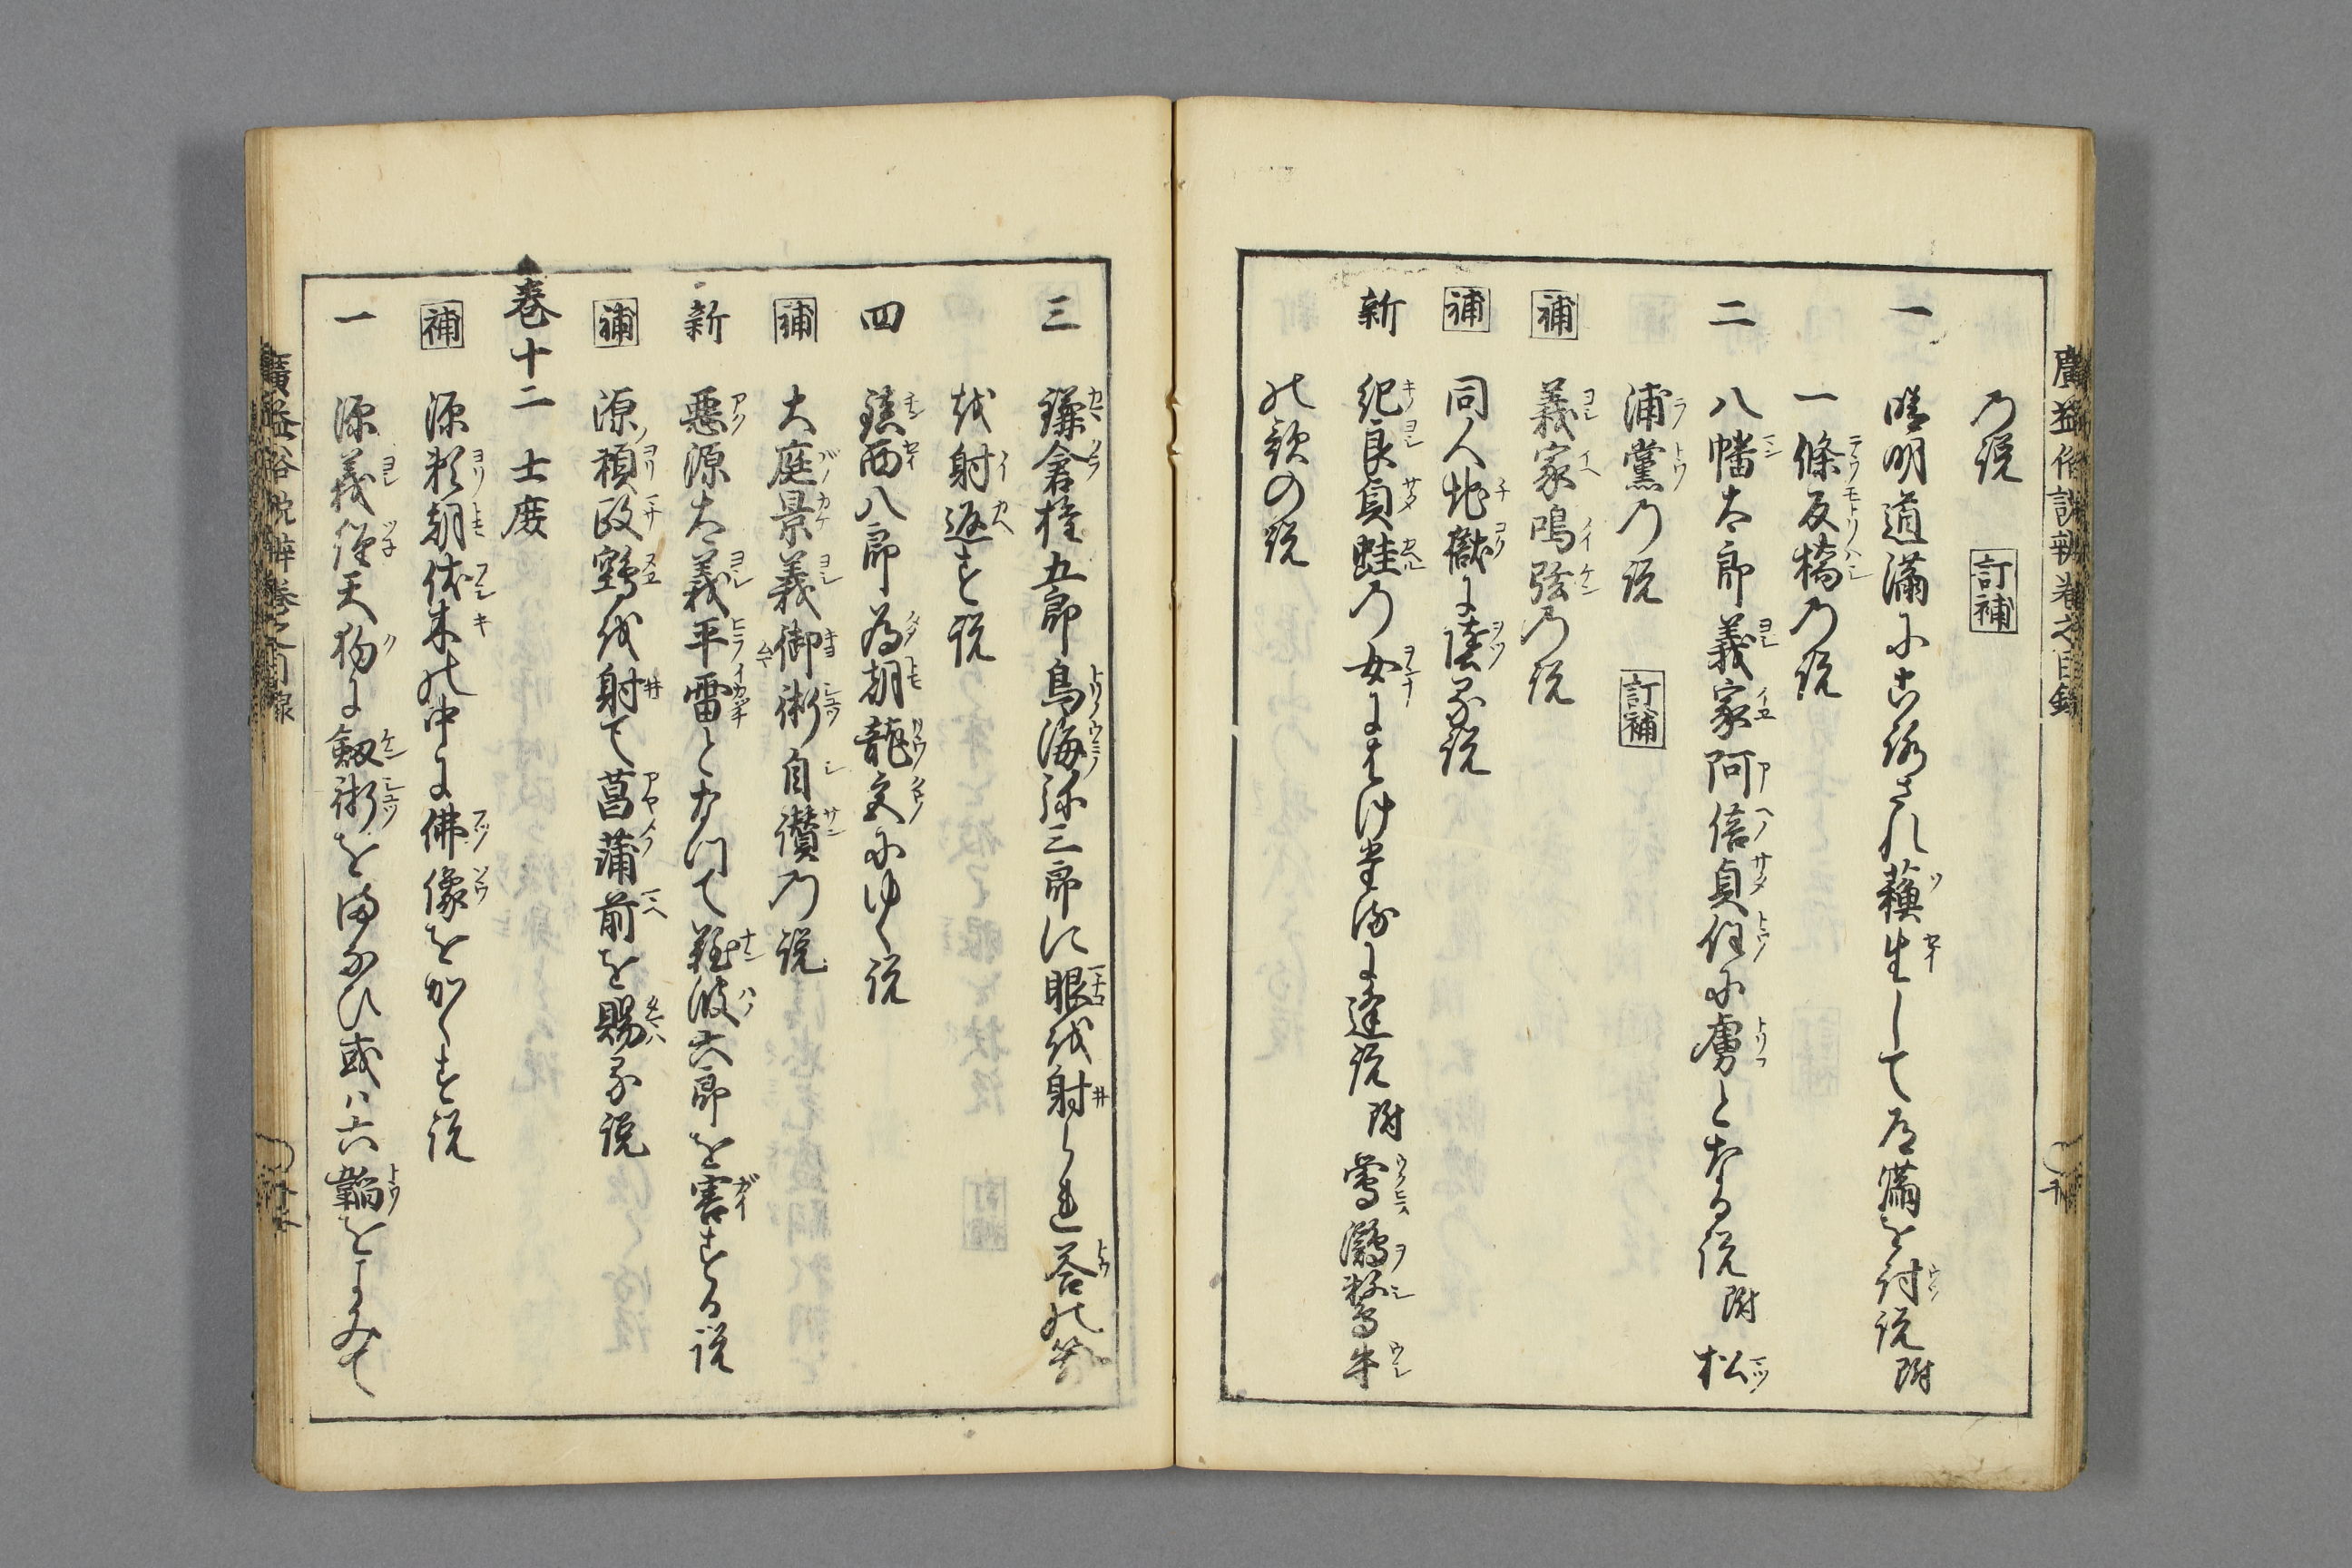 廣益俗説辨卷之目録
の説　訂補
一　晴明道滿に殺され蘓生して道滿を討説附
一條反橋の説
二　八幡太郎義家阿倍貞任に虜となる説附松
浦黨の説　訂補
補　義家鳴弦の説
補　同人地獄に墮る説
新　紀良貞蛙の女にばけたるに逢説附鶯鸂鶒牛
の歌の説
三　鎌倉權五郎鳥海弥三郎に眼を射られ答の箭
を射返す説
四　鎮西八郎為朝龍宮にゆく説
補　大庭景義御術自讃の説
新　惡源太義平雷となつて難波六郎を害する説
補　源頼政鵺を射て菖蒲前を賜る説
巻十二　士庶
補　源頼朝伏木の中に佛像をかくす説
一　源義經天狗に劔術をまなひ或ハ六韜をよみて
廣益俗説辨卷之目録